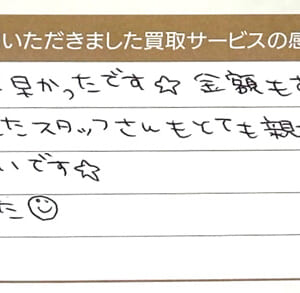 いただきました買取サービスの感
早かったです☆ 金額も
たスタッフさんもとても親
いです☆
た☺